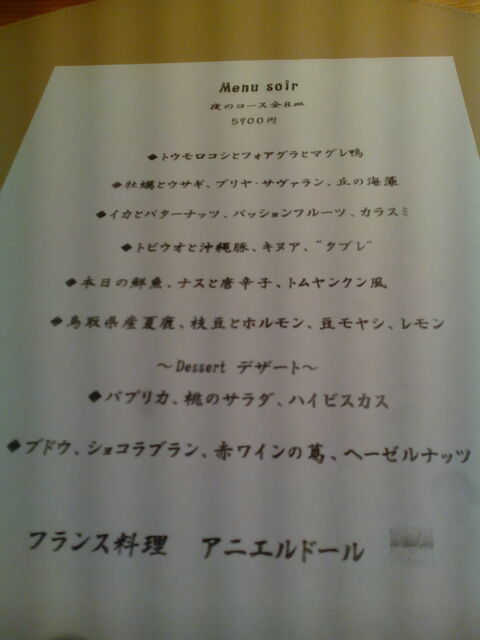 Menu soir
夜のコース全8皿
5900円
◆トウモロコシとフォアグラとマグレ鴨
◆牡蠣とウサギ、ブリヤ・サヴァラン、丘の海藻
◆イカとバターナッツ、パッションフルーツ、カラスミ
◆トビウオと沖縄豚、キヌア、“タブレ”
◆本日の鮮魚、ナスと唐辛子、トムヤンクン風
◆鳥取県産夏鹿、枝豆とホルモン、豆モヤシ、レモン
～Dessert デザート～
◆パプリカ、桃のサラダ、ハイビスカス
◆ブドウ、ショコラブラン、赤ワインの葛、ヘーゼルナッツ
フランス料理 アニエルドール